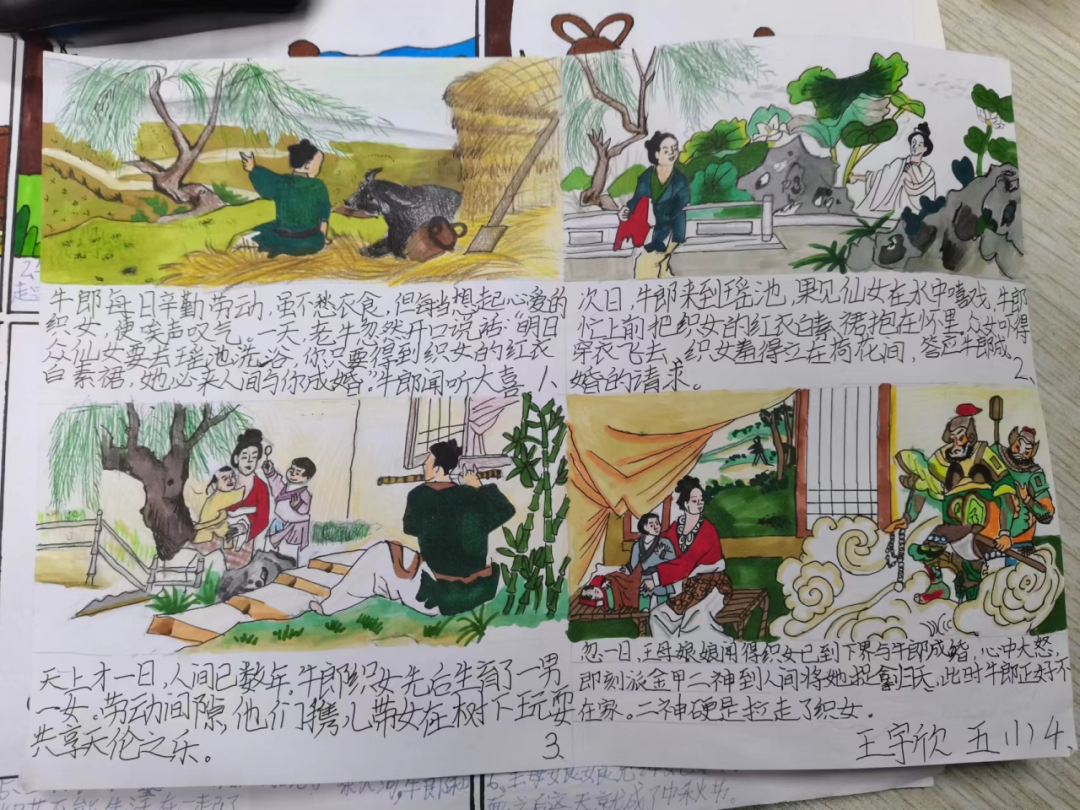 牛郎每日辛勤劳动,虽不愁衣食,但每当想起心爱的
织女,便唉声叹气。一天,老牛忽然开口说话:“明日
众仙女要去瑶池洗浴,你只要得到织女的红衣
白素裙,她必来人间与你成婚。”牛郎闻听大喜
1、
次日,牛郎来到瑶池,果见仙女在水中嬉戏,牛郎
忙上前把织女的红衣白素裙抱在怀里,众女吓得
穿衣飞去,织女羞得立在荷花间,答应牛郎成
婚的请求。
2、
天上才一日,人间已数年。牛郎织女先后生育了一男
一女。劳动间隙,他们携儿带女在树下玩耍
共享天伦之乐。
3、
忽一日,王母娘娘闻得织女已到下界与牛郎成婚,心中大怒,
即刻派金甲二神到人间将她捉拿归天,此时牛郎正好不
在家。二神硬是拉走了织女.
王宇欣 五(1) 4、